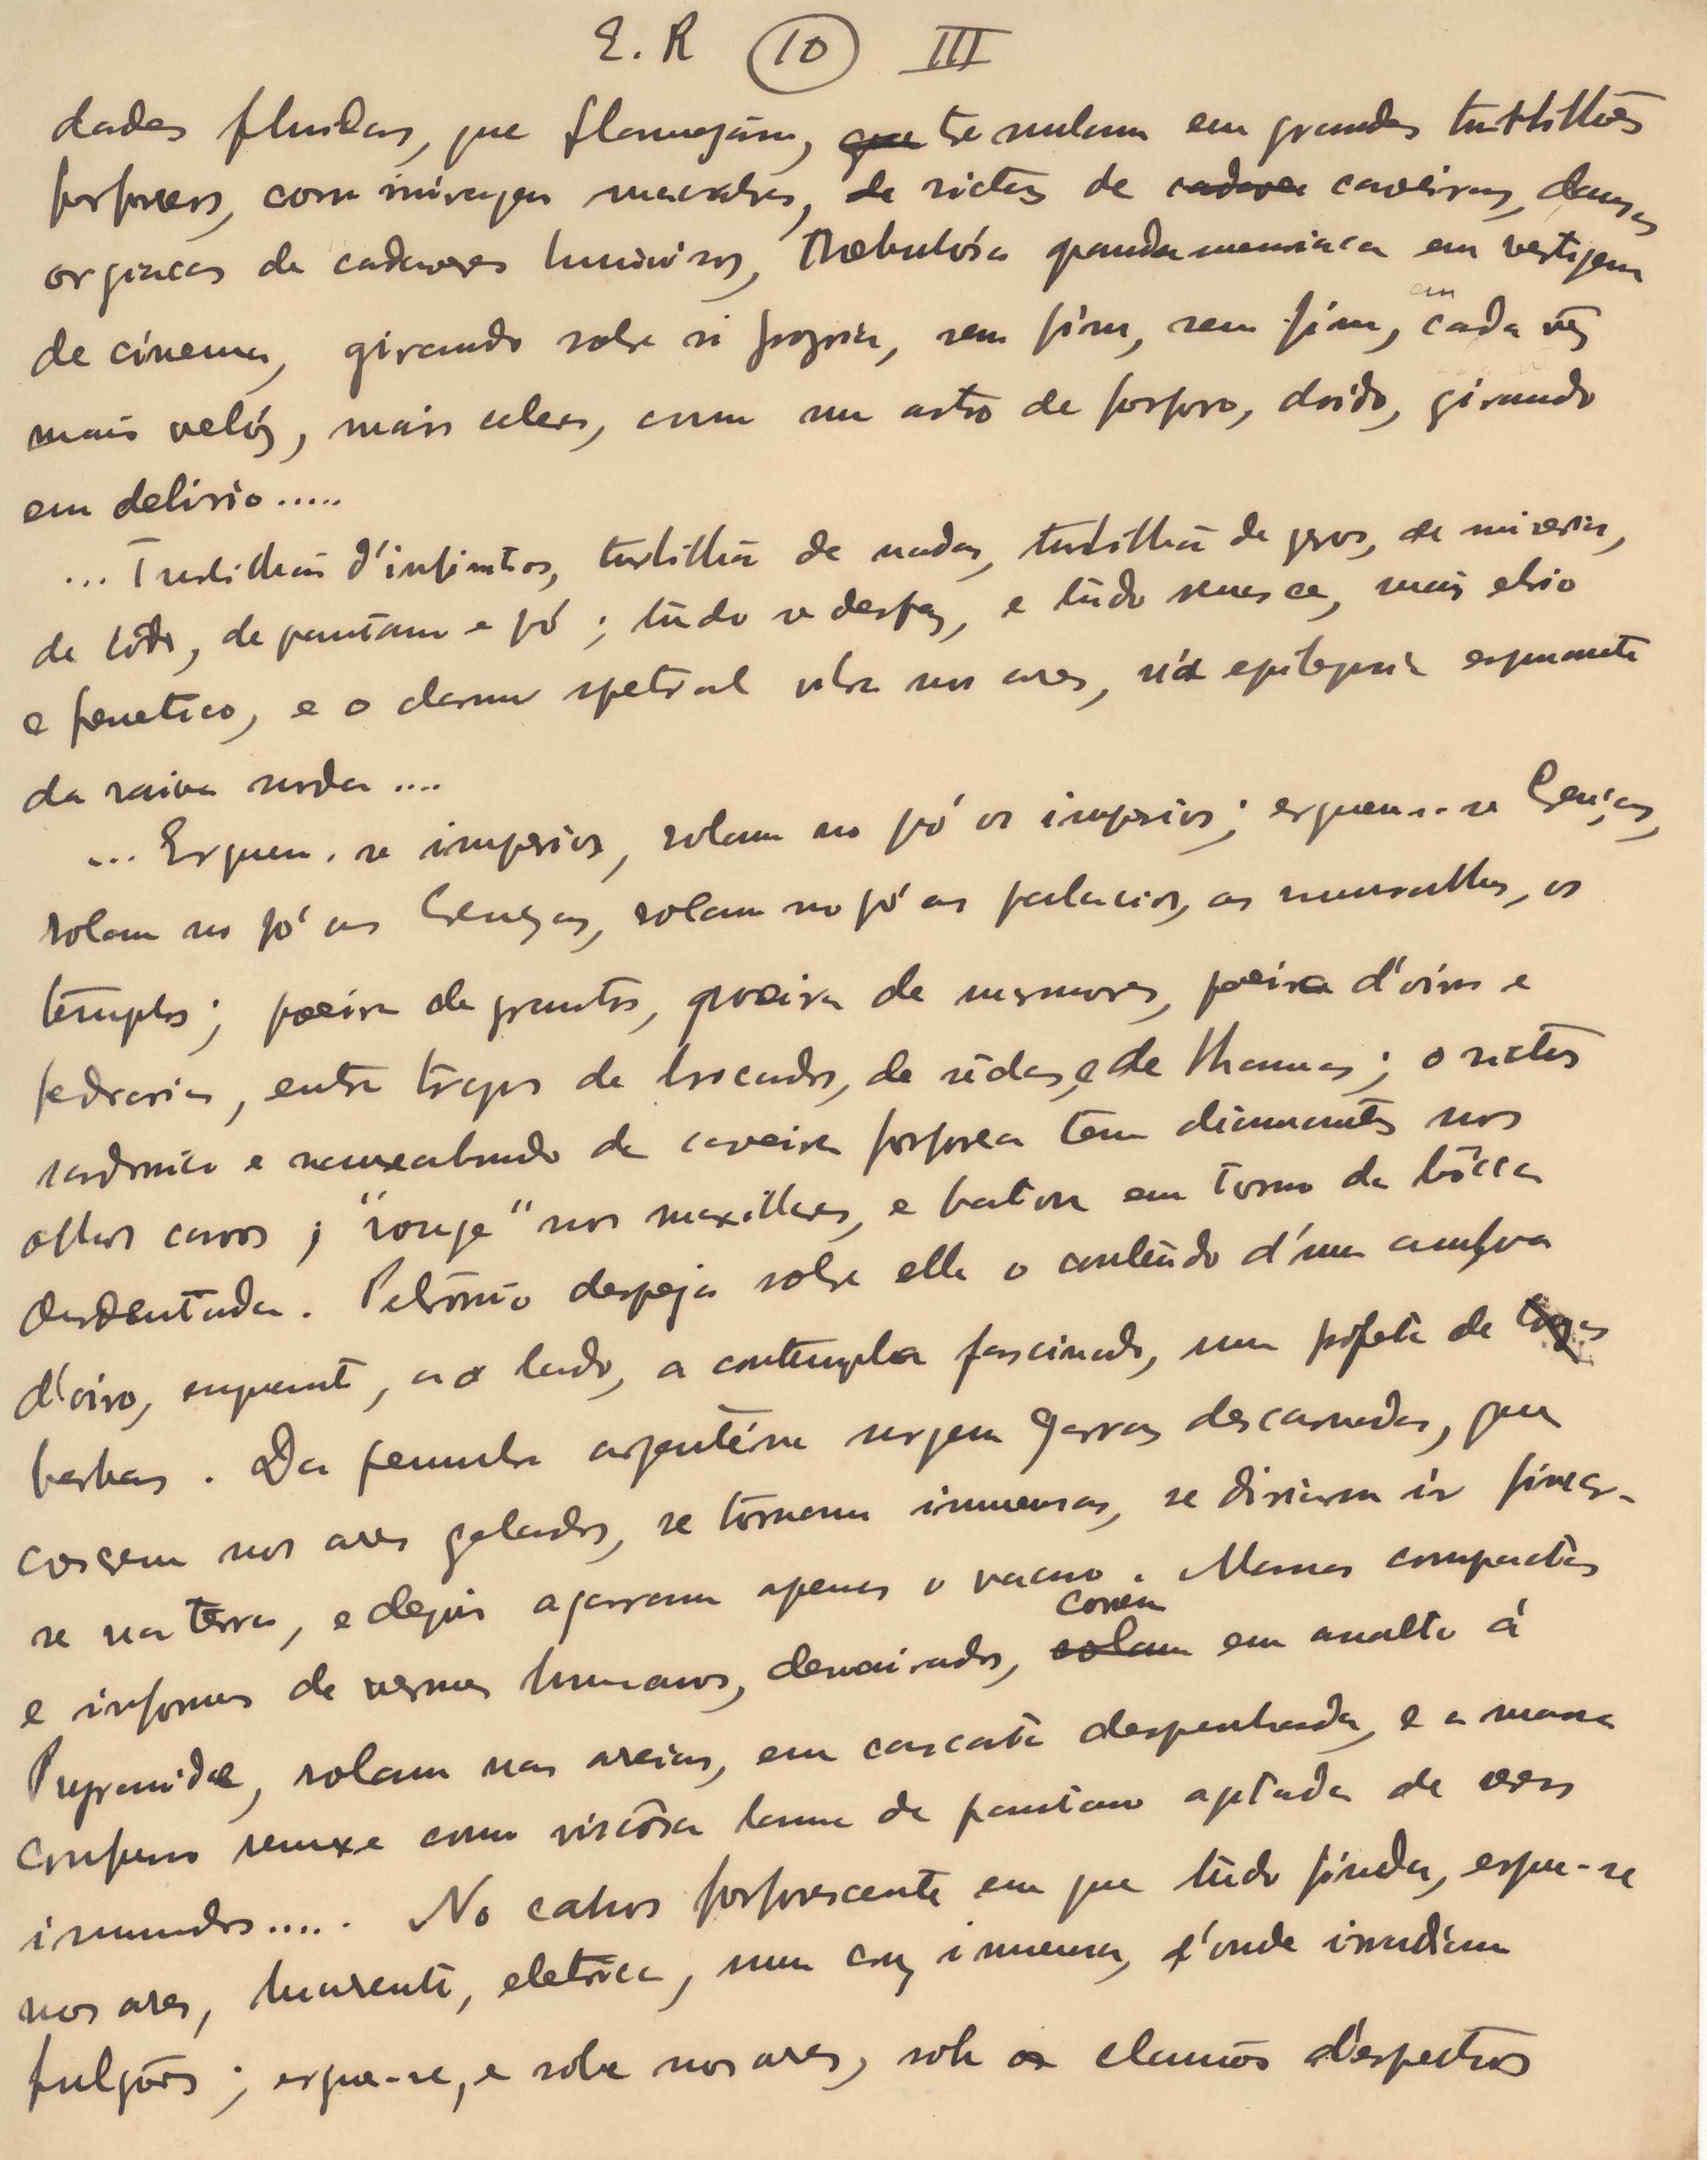 E. R 10 III
dades fluidas, que flamejam, que se enlaam em grandes turbilhões
forforeos, com miragens macabras, de rictus de cadave caveiras, danças
orgiacas de cadaveres luminosos, Nebulósa pandemoniaca em vertigem
de cinema, girando sobre si propria, sem fim, sem fim, em cada vêz
mais velóz, mais celere, como um astro de forforo, doido, girando
em delirio.....
... Turbilhão d'infinitos, turbilhão de nadas, turbilhão de gosos, de miserias,
de lôdo, de pantano e pó ; tudo se desfaz, e tudo renasce, mais ebrio
e frenetico, e o clamor spetral sobe nos ares, n'a epilepsia espumante
da raiva surda ....
... Erguem-se imperios, rolam no pó os imperios ; erguem-se Crenças,
rolam no pó as Crenças, rolam no pó os palacios, as muralhas, os
templos ; poeira de granitos, poeira de marmores, poeira d'oiro e
pedrarias, entre trapos de brocados, de sêdas, e de lhamas ; o rictus
sardonico e nauseabundo da caveira forforea tem diamantes nos
olhos cavos ; "rouge" nos maxillares, e baton em torno da bôcca
desdentada. Petrónio despeja sobre ella o conteúdo d'um amfora
d'oiro, emquanto, ao lado, a contempla fascinado, um profeta de longas
barbas. Da penumbra argenténa surgem garras descarnadas, que
crescem nos ares gelados, se tornam immensas, se diriam ir fincar-
se na terra, e depois agarram apenas o vacuo. Massas compactas
e informes de vermes humanos, desvairados, rolam correm em assalto á
Pyramide, rolam nas areias, em cascata despenhada, e a massa
confusa remexe como viscósa lama de pantano agitada de seres
immundos..... No cahos forforescente em que tudo finda, ergue-se
nos ares, luzente, eletrica, uma cruz immensa, d'onde irradiam
fulgôres ; ergue-se, e sobe nos ares, sob os clamôres d'espectros